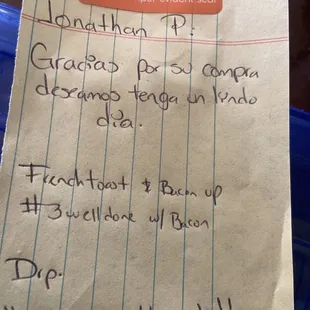 Jonathan P:
Gracias por su compra
deseamos tenga un lindo
día.
French toast & Bacon up
#3 well done w/ Bacon
Drp.